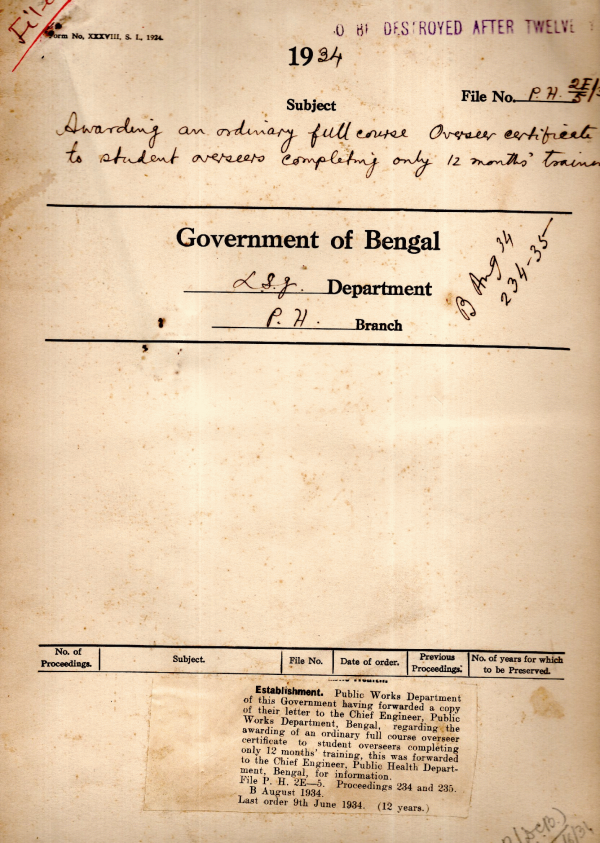 File
Form No. XXXVIII, S. I., 1924.
O BE DESTROYED AFTER TWELVE
1934
File No. P. H. 2E/5
Subject
Awarding an ordinary full course Overseer certificate
to student overseers completing only 12 months' train
Government of Bengal
L.S.G. Department
P. H. Branch
B Aug 34
234-35
No. of Proceedings. Subject. File No. Date of order. Previous Proceedings. No. of years for which to be Preserved.
Establishment. Public Works Department
of this Government having forwarded a copy
of their letter to the Chief Engineer, Public
Works Department, Bengal, regarding the
awarding of an ordinary full course overseer
certificate to student overseers completing
only 12 months' training, this was forwarded
to the Chief Engineer, Public Health Depart-
ment, Bengal, for information.
File P. H. 2E—5. Proceedings 234 and 235.
B August 1934.
Last order 9th June 1934. (12 years.)